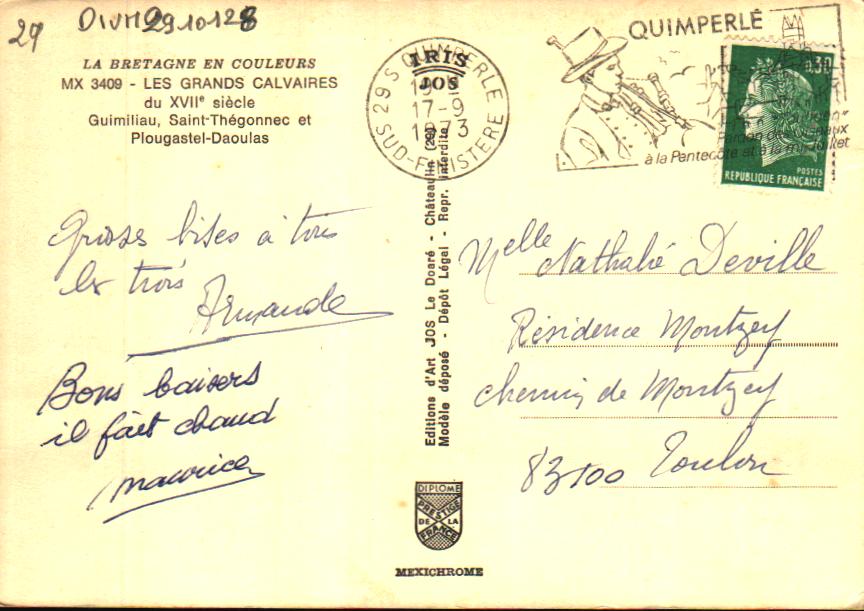 29
DIVH 29 10 128
LA BRETAGNE EN COULEURS
MX 3409 - LES GRANDS CALVAIRES
du XVIIe siècle
Guimiliau, Saint-Thégonnec et
Plougastel-Daoulas
Grosses bises à tous
les trois
Armande
Bons baisers
il fait chaud
maurice
IRIS
JOS
29 S QUIMPERLE
17-9
1973
SUD-FINISTERE
Editions d'Art JOS Le Doaré - Châteaulin (29)
Modèle déposé - Dépôt Légal - Repr. interdite
DIPLOME
PRESTIGE
DE LA
FRANCE
MEXICHROME
QUIMPERLÉ
Pardon des Oiseaux
à la Pentecôte et à la mi-Juillet
0,30
POSTES
REPUBLIQUE FRANÇAISE
Melle Nathalie Deville
Résidence Montzey
chemin de Montzey
83100 Toulon